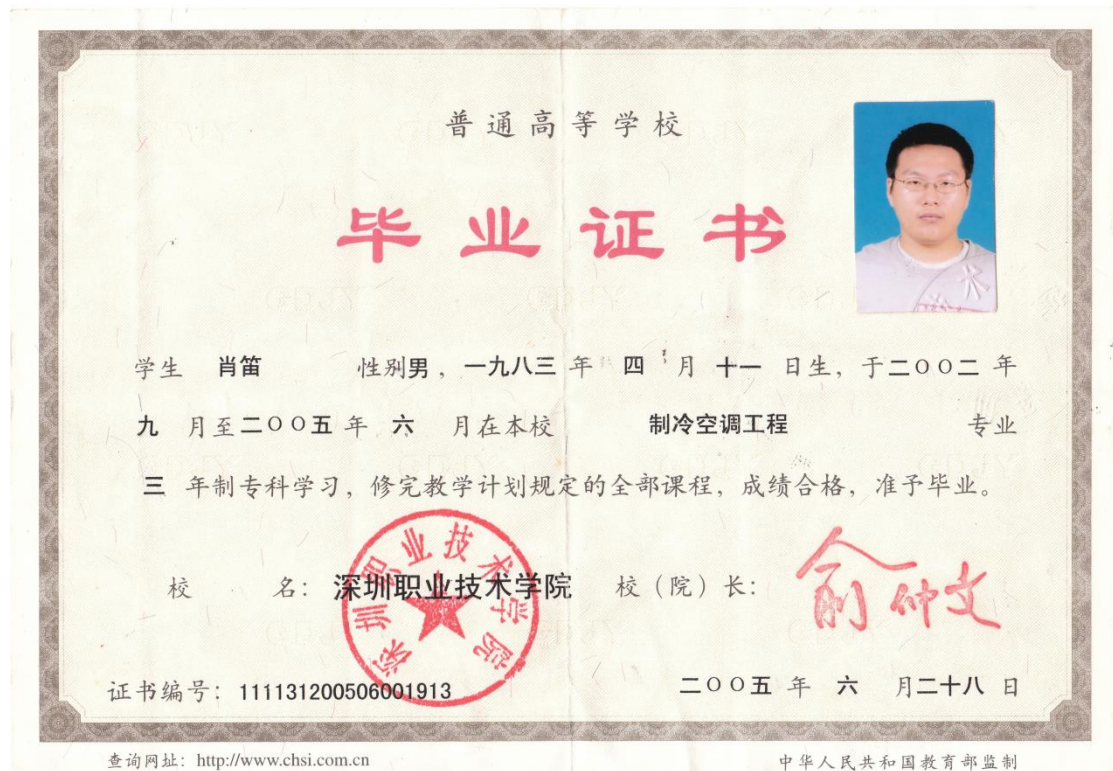 普通高等学校
毕业证书
学生 肖笛 性别男，一九八三 年 四 月 十一 日生，于二〇〇二 年
九 月至二〇〇五 年 六 月在本校 制冷空调工程 专业
三 年制专科学习，修完教学计划规定的全部课程，成绩合格，准予毕业。
校 名：深圳职业技术学院 校（院）长：俞仲文
深圳职业技术学院
证书编号：111131200506001913 二〇〇五 年 六 月二十八 日
查询网址：http://www.chsi.com.cn 中华人民共和国教育部监制